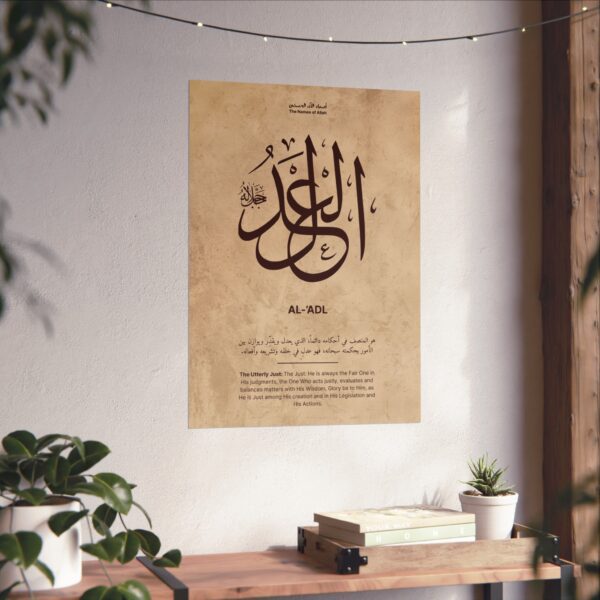 أسماء الله الحسنى
The Names of Allah
العدل
جل جلاله
AL-‘ADL
هو المنصف في أحكامه دائماً، الذي يعدل ويقدّر ويوازن بين
الأمور بحكمته سبحانه، فهو عدل في خلقه وتشريعه وأفعاله.
The Utterly Just: The Just: He is always the Fair One in
His judgments, the One Who acts justly, evaluates and
balances matters with His Wisdom, Glory be to Him, as
He is Just among His creation and in His Legislation and
His Actions.
HOME